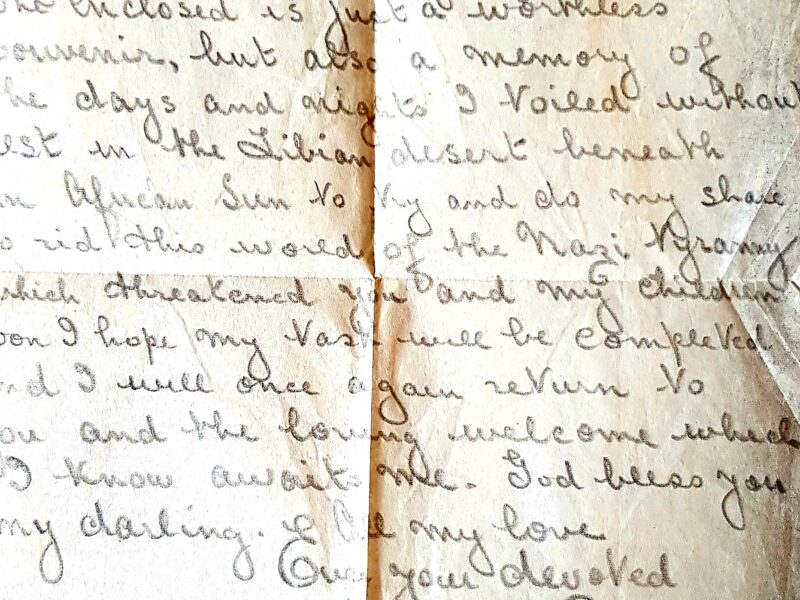 enclosed is just a worthless
souvenir, but also a memory of
he days and nights I toiled without
est in the Libian desert beneath
an African Sun to try and do my share
o rid this world of the Nazi Tyranny
which threatened you and my children
oon I hope my task will be completed
nd I will once again return to
ou and the loving welcome which
I know awaits me. God bless you
my darling. & all my love
Ever your devoted